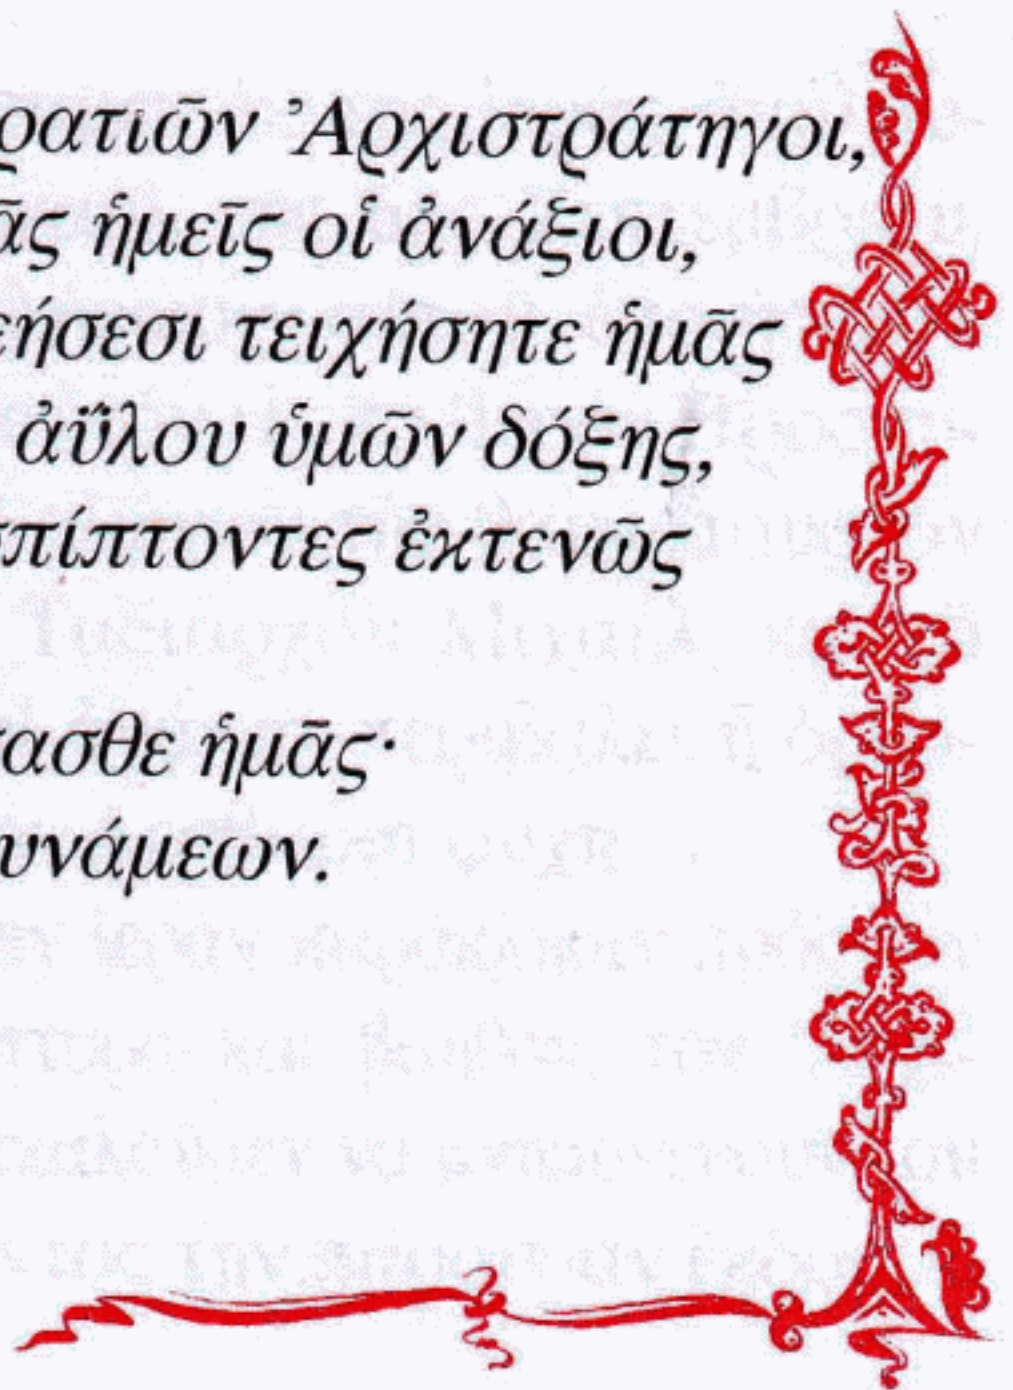 ρατιῶν Ἀρχιστράτηγοι,
ᾶς ἡμεῖς οἱ ἀνάξιοι,
εήσεσι τειχήσητε ἡμᾶς
ἀΰλου ὑμῶν δόξης,
σπίπτοντες ἐκτενῶς
σασθε ἡμᾶς·
υνάμεων.